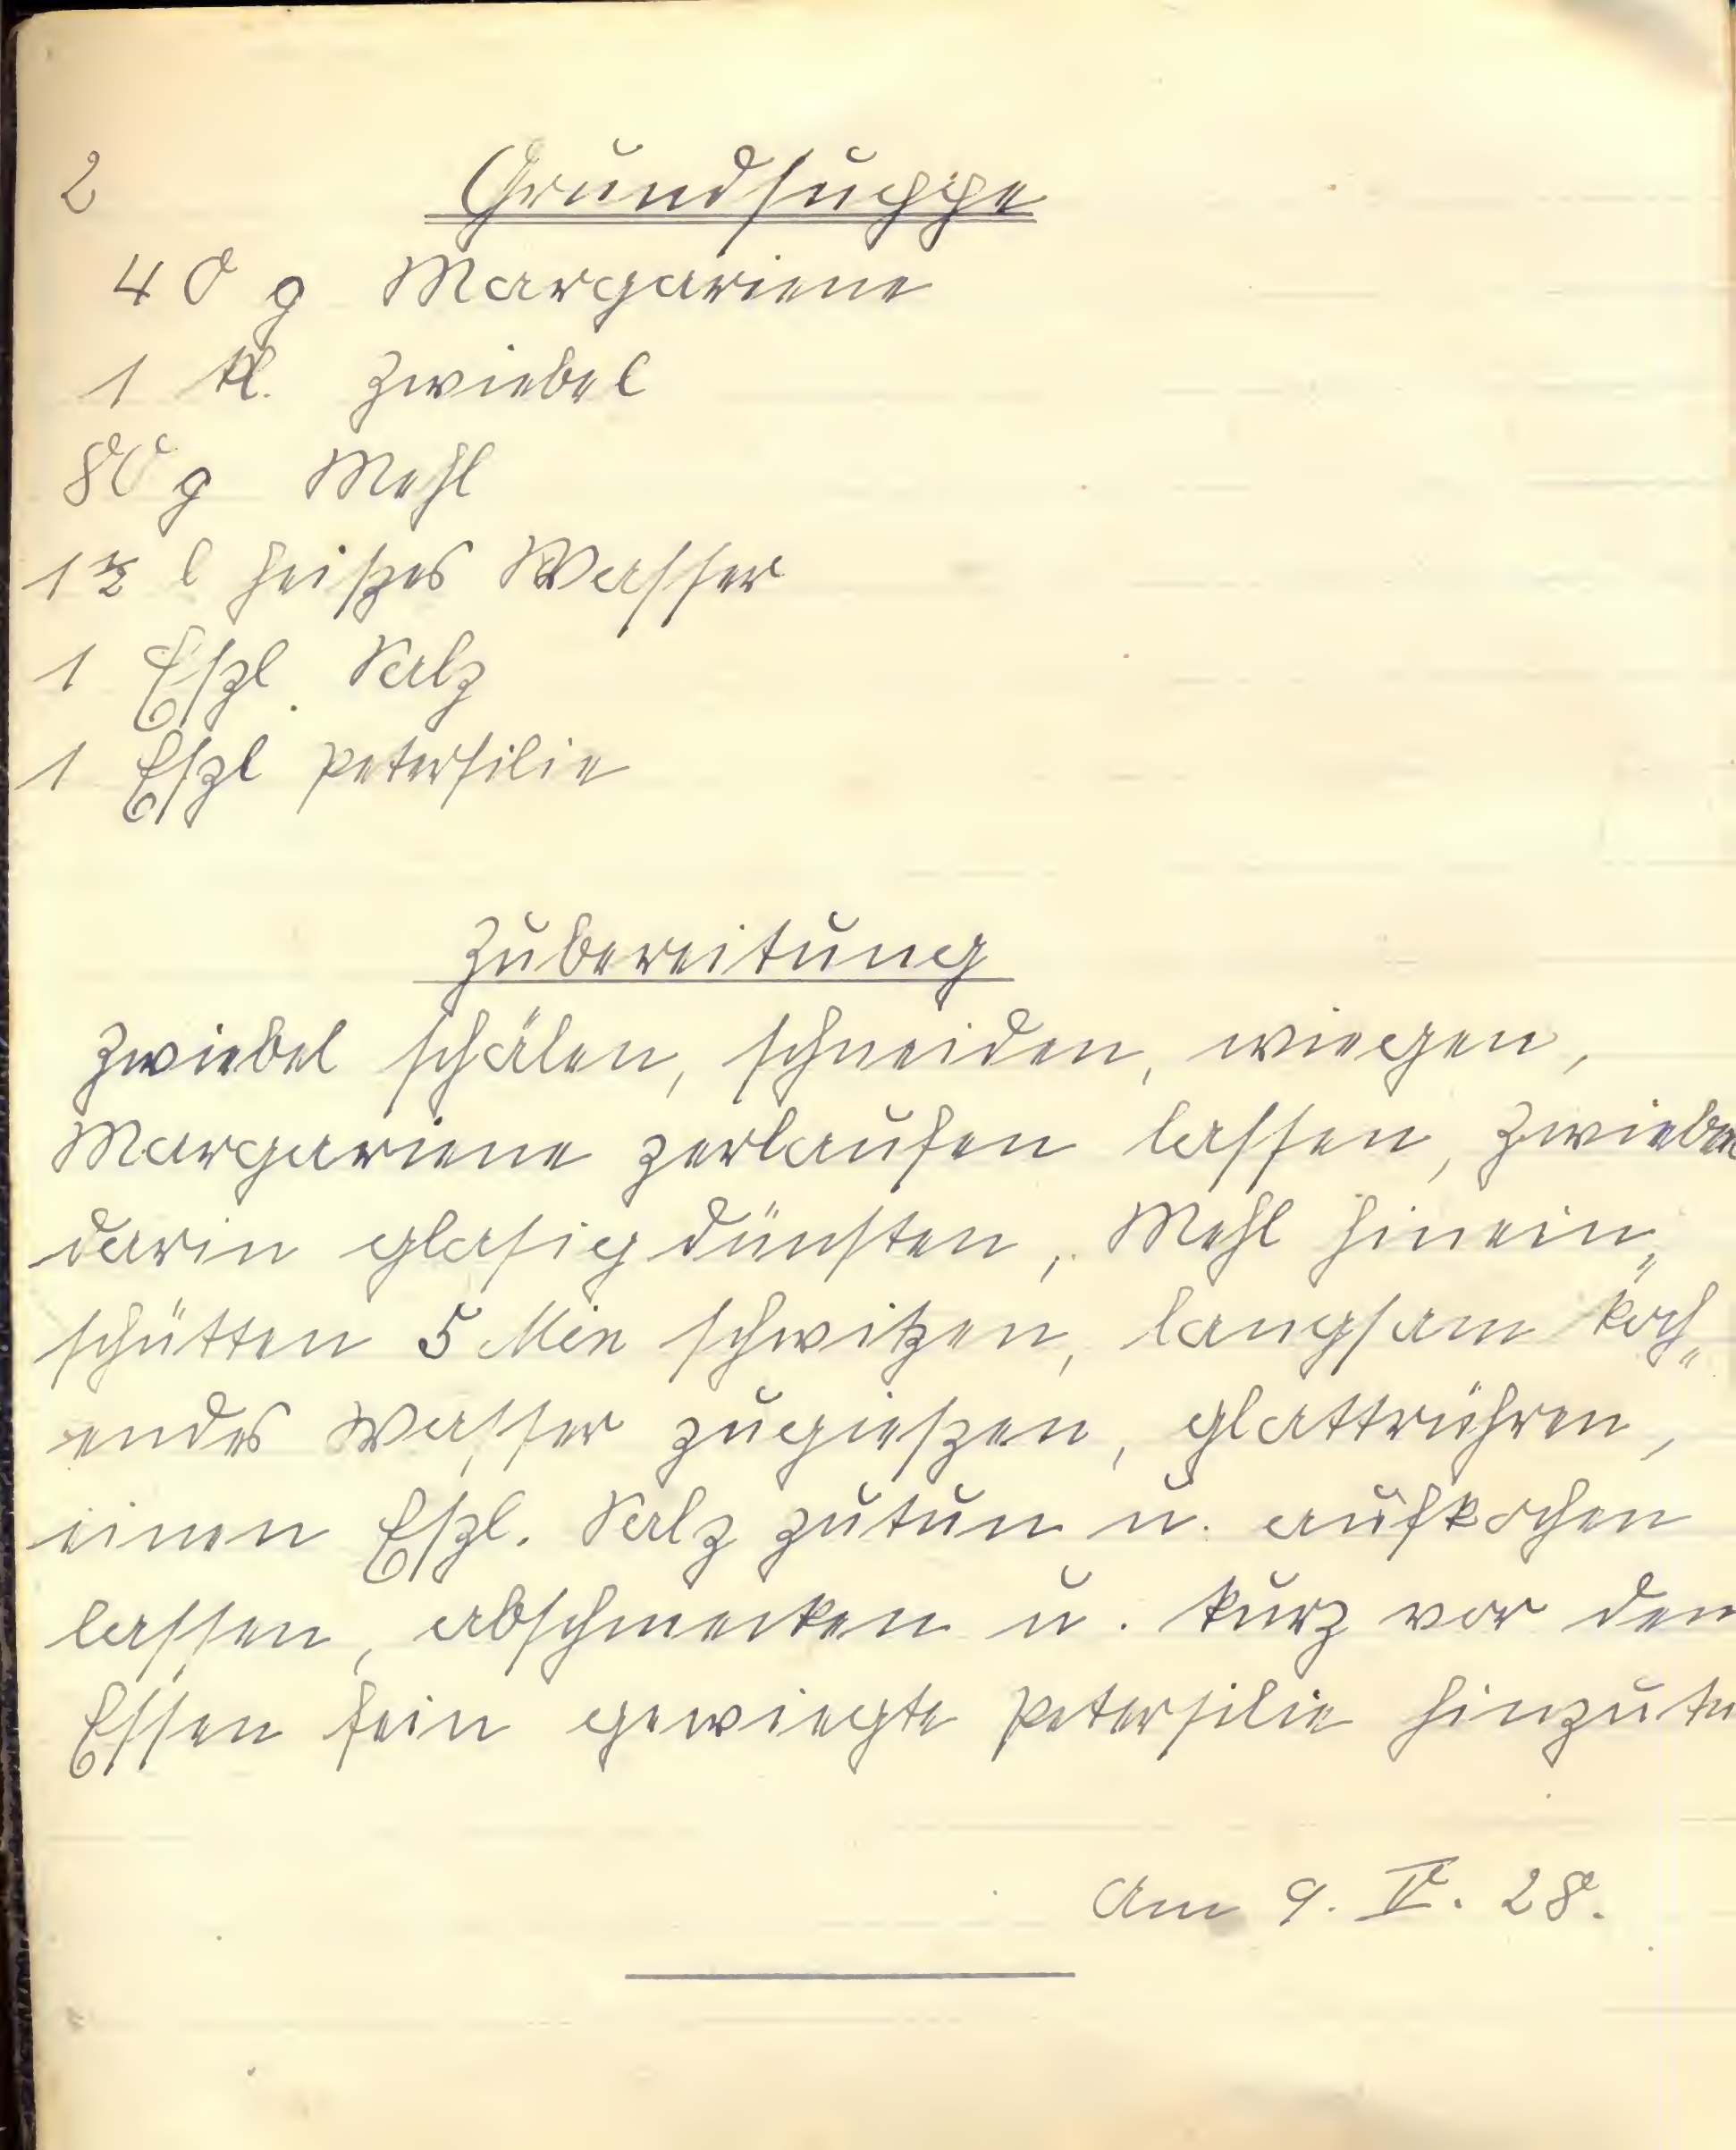 2 Grundsuppe
40 g Margariene
1 kl. Zwiebel
80 g Mehl
1½ l heißes Wasser
1 Eßl. Salz
1 Eßl Petersilie
Zubereitung
Zwiebel schälen, schneiden, wiegen,
Margariene zerlaufen lassen, Zwiebel
darin glasig dünsten, Mehl hinein„
schütten 5 Min schwitzen, langsam koch„
endes Wasser zugießen, glattrühren,
einen Eßl. Salz zutun u. aufkochen
lassen, abschmecken u. kurz vor dem
Essen fein gewiegte Petersilie hinzutu
Am 9. V. 28.